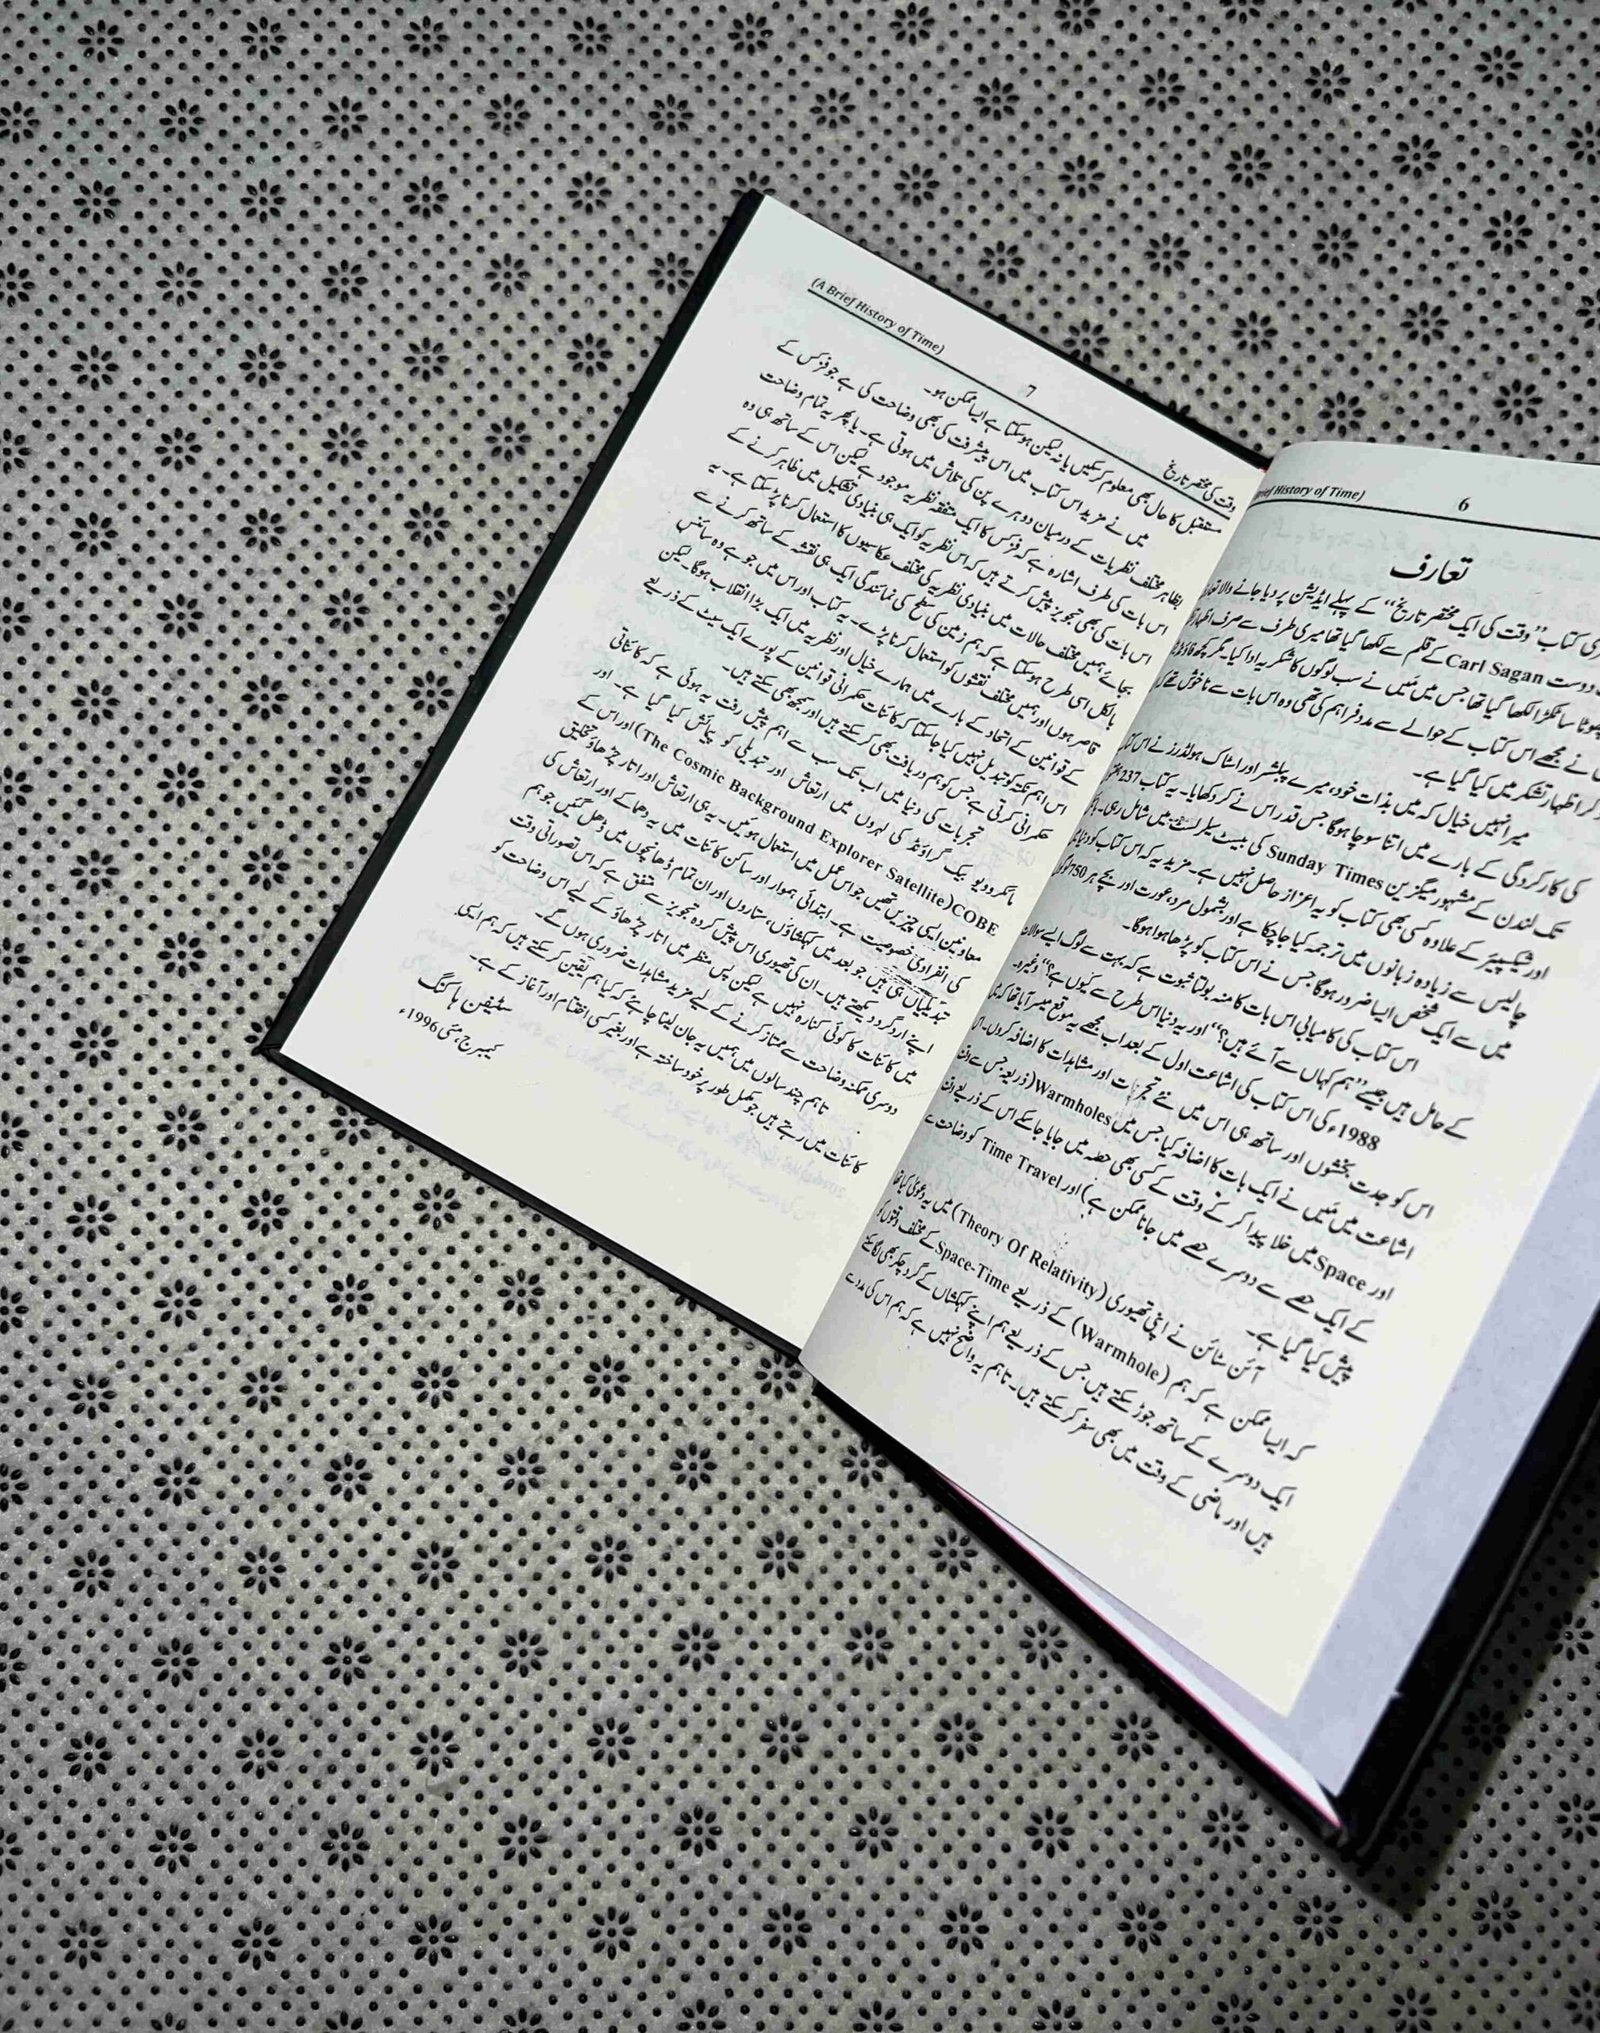 6
(A Brief History of Time)
تعارف
کتاب ”وقت کی ایک مختصر تاریخ“ کے پہلے ایڈیشن پر دیا جانے والا
دوست Carl Sagan کے قلم سے لکھا گیا تھا میری طرف سے صرف اظہار
چھوٹا سا ٹکڑا لکھا گیا تھا جس میں مَیں نے سب لوگوں کا شکریہ ادا کیا۔ مگر کچھ
نے مجھے اس کتاب کے حوالے سے مدد فراہم کی تھی وہ اس بات سے ناخوش تھے
کر اظہارِ تشکر میں کیا گیا ہے۔
میرا نہیں خیال کہ میں بذات خود، میرے پبلشر اور اسٹاک ہولڈرز نے اس
کی کارکردگی کے بارے میں اتنا سوچا ہوگا جس قدر اس نے کر دکھایا۔ یہ کتاب 237
تک لندن کے مشہور میگزین Sunday Times کی بیسٹ سیلر لسٹ میں شامل رہی۔
اور شیکسپیئر کے علاوہ کسی بھی کتاب کو یہ اعزاز حاصل نہیں ہے۔ مزید یہ کہ اس کتاب کو دنیا
چالیس سے زیادہ زبانوں میں ترجمہ کیا جا چکا ہے اور بشمول مرد، عورت اور بچے ہر 750
میں سے ایک شخص ایسا ضرور ہوگا جس نے اس کتاب کو پڑھا ہوا ہوگا۔
اس کتاب کی کامیابی اس بات کا منہ بولتا ثبوت ہے کہ بہت سے لوگ ایسے سوالات
کے حامل ہیں جیسے ”ہم کہاں سے آئے ہیں؟“ اور یہ دنیا اس طرح سے کیوں ہے؟“ وغیرہ۔
1988ء کی اس کتاب کی اشاعت اول کے بعد اب مجھے یہ موقع میسر آیا تھا کہ میں
اس کو جدت بخشوں اور ساتھ ہی اس میں نئے تجربات اور مشاہدات کا اضافہ کروں۔ اس
اشاعت میں مَیں نے ایک بات کا اضافہ کیا جس میں Warmholes (ذریعہ جس سے وقت
اور Space میں خلا پیدا کر کے وقت کے کسی بھی حصہ میں جایا جا سکے اس کے ذریعے وقت
کے ایک حصے سے دوسرے حصے میں جانا ممکن ہے) اور Time Travel کو وضاحت سے
پیش کیا گیا ہے۔
آئن سٹائن نے اپنی تھیوری (Theory Of Relativity) میں یہ دعویٰ کیا تھا
کہ ایسا ممکن ہے کہ ہم (Warmhole) کے ذریعے Space-Time کے مختلف وقتوں کو
ایک دوسرے کے ساتھ جوڑ سکتے ہیں جس کے ذریعے ہم اپنے کہکشاں کے گرد چکر بھی لگا سکتے
ہیں اور ماضی کے وقت میں بھی سفر کر سکتے ہیں۔ تاہم یہ واضح نہیں ہے کہ ہم اس کی مدد سے
وقت کی مختصر تاریخ
7
(A Brief History of Time)
مستقبل کا حال بھی معلوم کر سکیں یا نہ لیکن ہو سکتا ہے ایسا ممکن ہو۔
میں نے مزید اس کتاب میں اس پیشرفت کی بھی وضاحت کی ہے جو فزکس کے
بظاہر مختلف نظریات کے درمیان دوہرے پن کی تلاش میں ہوئی ہے۔ یا پھر یہ تمام وضاحت
اس بات کی طرف اشارہ ہے کہ فزکس کا ایک متفقہ نظریہ موجود ہے لیکن اس کے ساتھ ہی وہ
اس بات کی بھی تجویز پیش کرتے ہیں کہ اس نظریہ کو ایک ہی بنیادی تشکیل میں ظاہر کرنے کے
بجائے ہمیں مختلف حالات میں بنیادی نظریہ کی مختلف عکاسیوں کا استعمال کرنا پڑ سکتا ہے۔ یہ
بالکل اسی طرح ہو سکتا ہے کہ ہم زمین کی سطح کی نمائندگی ایک ہی نقشہ کے ساتھ کرنے سے
قاصر ہوں اور ہمیں مختلف نقشوں کو استعمال کرنا پڑے۔ یہ کتاب اور اس میں جو ہے وہ سائنس
کے قوانین کے اتحاد کے بارے میں ہمارے خیال اور نظریہ میں ایک بڑا انقلاب ہوگا۔ لیکن
اس اہم نکتہ کو تبدیل نہیں کیا جا سکتا کہ کائنات حکمرانی قوانین کے پورے ایک سیٹ کے ذریعے
حکمرانی کرتی ہے جس کو ہم دریافت بھی کر سکتے ہیں اور سمجھ بھی سکتے ہیں۔
تجربات کی دنیا میں اب تک سب سے اہم پیش رفت یہ ہوئی ہے کہ کائناتی
مائکروویو بیک گراؤنڈ کی لہروں میں ارتعاش اور تبدیلی کو پیمائش کیا گیا ہے۔ اور
COBE (The Cosmic Background Explorer Satellite) اور اس کے
معاونین ایسی چیزیں تھیں جو اس عمل میں استعمال ہوئیں۔ یہی ارتعاش اور اتار چڑھاؤ تخلیق
کی انفرادی خصوصیت ہے۔ ابتدائی ہموار اور ساکن کائنات میں یہ دھماکے اور ارتعاش کی
تبدیلیاں ہی ہیں جو بعد میں کہکشاؤں، ستاروں اور ان تمام ڈھانچوں میں ڈھل گئیں جو ہم
اپنے ارد گرد دیکھتے ہیں۔ ان کی تھیوری اس پیش کردہ تجویز سے متفق ہے کہ اس تصوراتی وقت
میں کائنات کا کوئی کنارہ نہیں ہے لیکن پس منظر میں اتار چڑھاؤ کے لیے اس وضاحت کو
دوسری ممکنہ وضاحت سے ممتاز کرنے کے لیے مزید مشاہدات ضروری ہوں گے۔
تاہم چند سالوں میں ہمیں یہ جان لینا چاہئے کہ کیا ہم یقین کر سکتے ہیں کہ ہم ایسی
کائنات میں رہتے ہیں جو مکمل طور پر خود ساختہ ہے اور بغیر کسی اختتام اور آغاز کے ہے۔
سٹیفن ہاکنگ
کیمبرج، مئی 1996ء